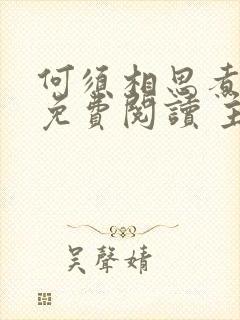 何須相思煮
免費閱讀 主
吳聲婧